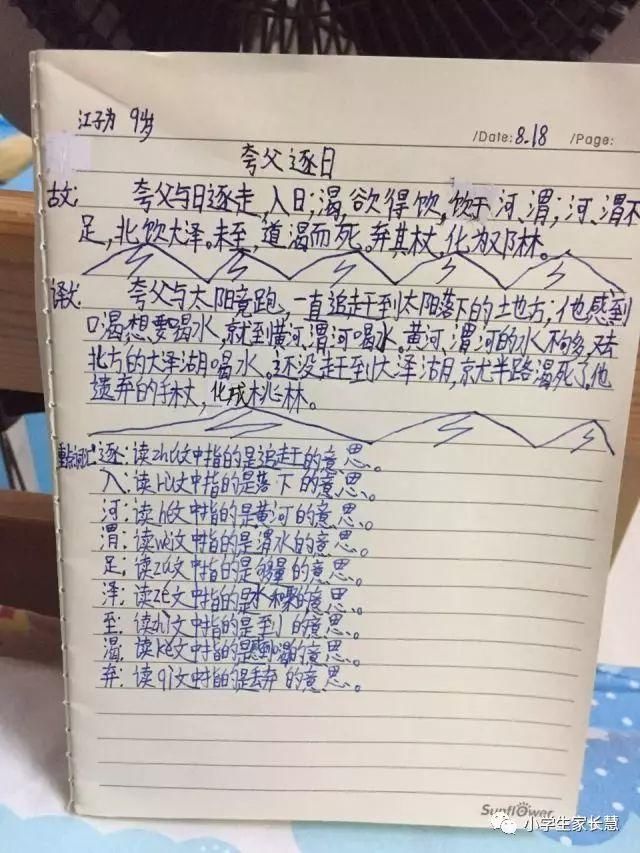 江子为 9岁
/Date: 8.18 /Page:
夸父逐日
古文: 夸父与日逐走,入日;渴,欲得饮,饮于河、渭;河、渭不
足,北饮大泽。未至,道渴而死。弃其杖,化为邓林。
译文: 夸父与太阳竞跑,一直追赶到太阳落下的土也方;他感到
口渴想要喝水,就到黄河、渭河喝水。黄河、渭河的水不够多,又去
北方的大泽湖喝水。还没赶到大泽湖,就半路渴死了。他
遗弃的手杖,化成桃林。
重点词汇 逐:读zhú文中指的是追赶的意思。
入:读rù文中指的是落下的意思。
河:读hé文中指的是黄河的意思。
渭:读wèi文中指的是渭水的意思。
足:读zú文中指的是够量的意思。
泽:读zé文中指的是水和的意思。
至:读zhì文中指的是到的意思。
渴:读kě文中指的是感到口渴的意思。
弃:读qì文中指的是丢弃的意思。
Sunflower
小学生家长慧